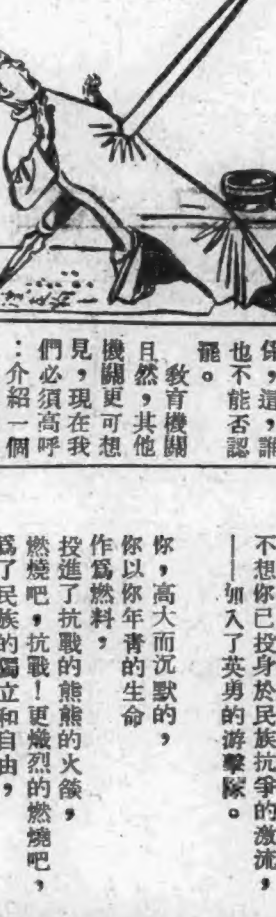 係，這，誰
也不能否認
罷。
教育機關
且然，其他
機關更可想
見，現在我
們必須高呼
：介紹一個
不想你已投身於民族抗爭的激流，
——加入了英勇的游擊隊。
你，高大而沉默的，
你以你年青的生命
作爲燃料，
投進了抗戰的熊熊的火燄，
燃燒吧，抗戰！更熾烈的燃燒吧，
爲了民族的獨立和自由，